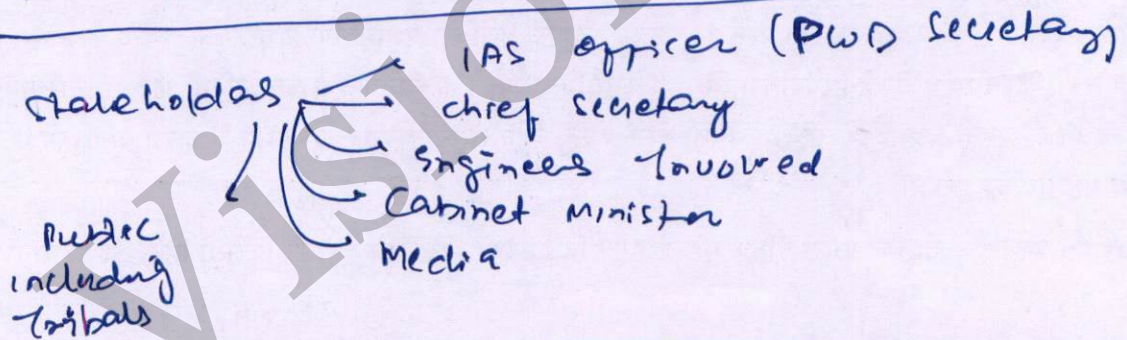 Stakeholders
IAS officer (PWD Secretary)
chief secretary
Engineers Involved
Cabinet Minister
Media
Public
including
Tribals
Vision